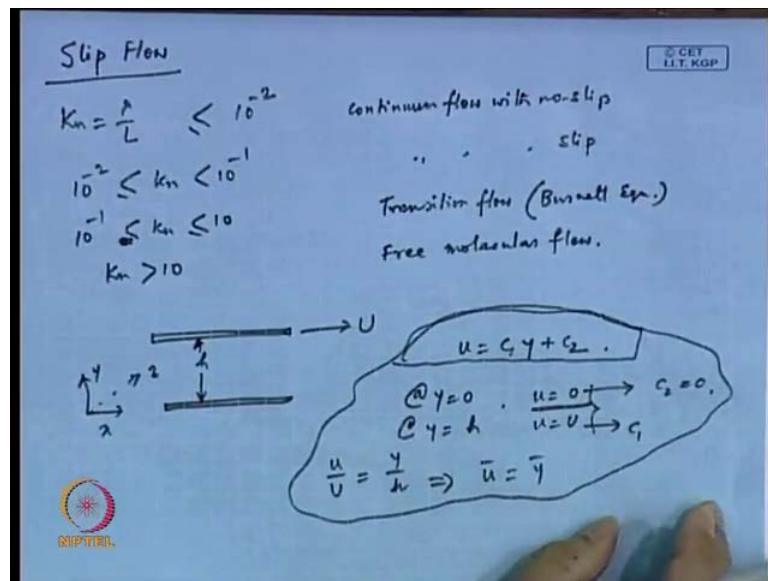 Slip Flow
© CET
I.I.T. KGP
Kn = λ/L ≤ 10⁻² continuum flow with no-slip
10⁻² ≤ Kn < 10⁻¹ ,, , , slip
10⁻¹ ≤ Kn ≤ 10 Transition flow (Burnett Eqn.)
Kn > 10 Free molecular flow.
U
h
y
z
x
u = C₁ y + C₂ .
@ y=0 . u = 0 → C₂ = 0.
@ y = h u = U → C₁
u/U = y/h ⇒ ū = ȳ
NPTEL